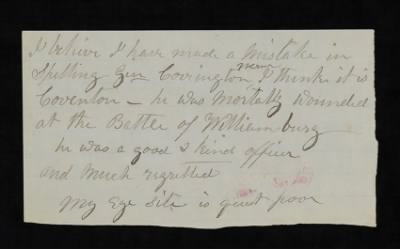 I believe I have made a mistake in
Spelling Gen Covington name, I think it is
Coventon – he was Mortally wounded
at the Battle of Williamburg
he was a good & kind officer
and Much regretted
My Eye Site is quit poor